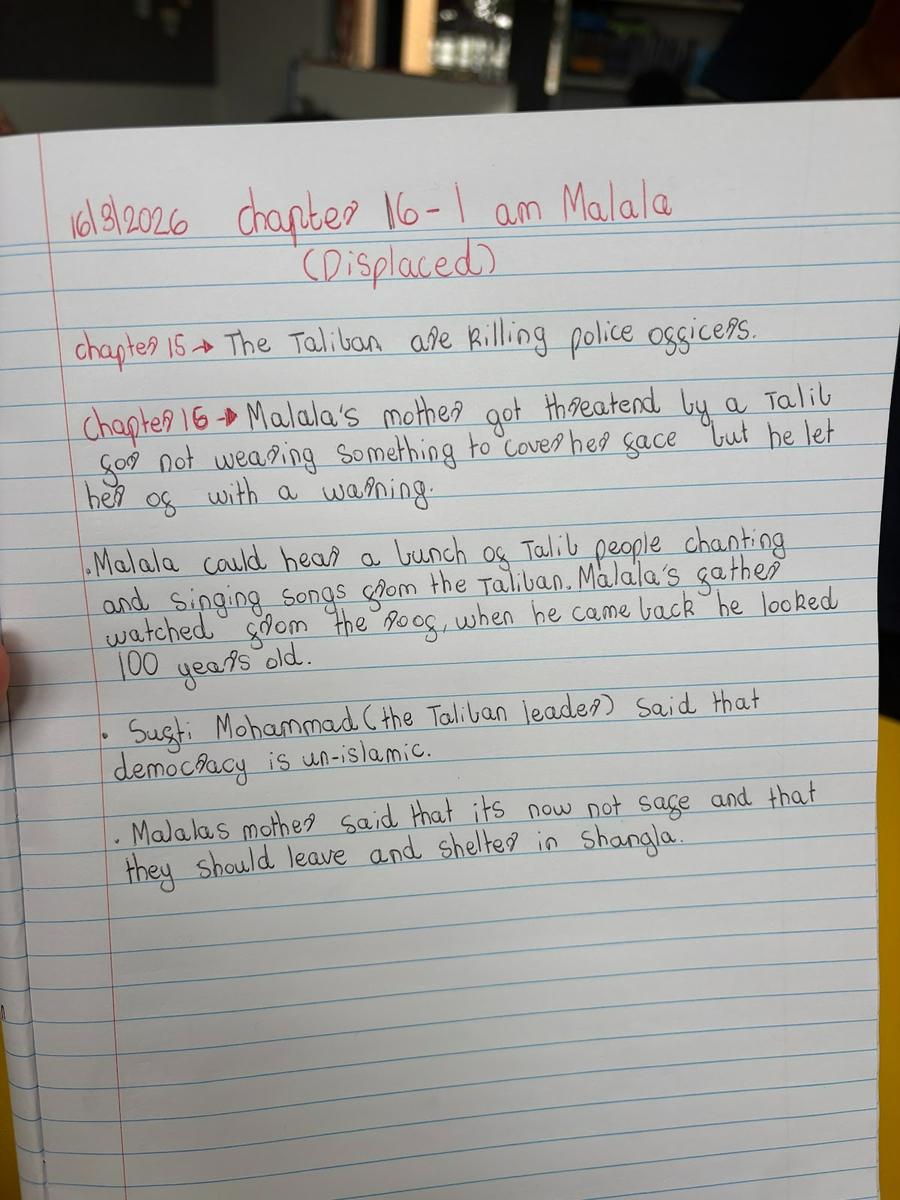 16/3/2026 Chapter 16 - I am Malala
(Displaced)
Chapter 15 → The Taliban are killing police officers.
Chapter 16 → Malala's mother got threatend by a Talib
for not wearing something to cover her face but he let
her of with a warning.
. Malala could hear a bunch of Talib people chanting
and singing songs from the Taliban. Malala's father
watched from the roof, when he came back he looked
100 years old.
. Sufti Mohammad (the Taliban leader) said that
democracy is un-islamic.
. Malalas mother said that its now not safe and that
they should leave and shelter in Shangla.